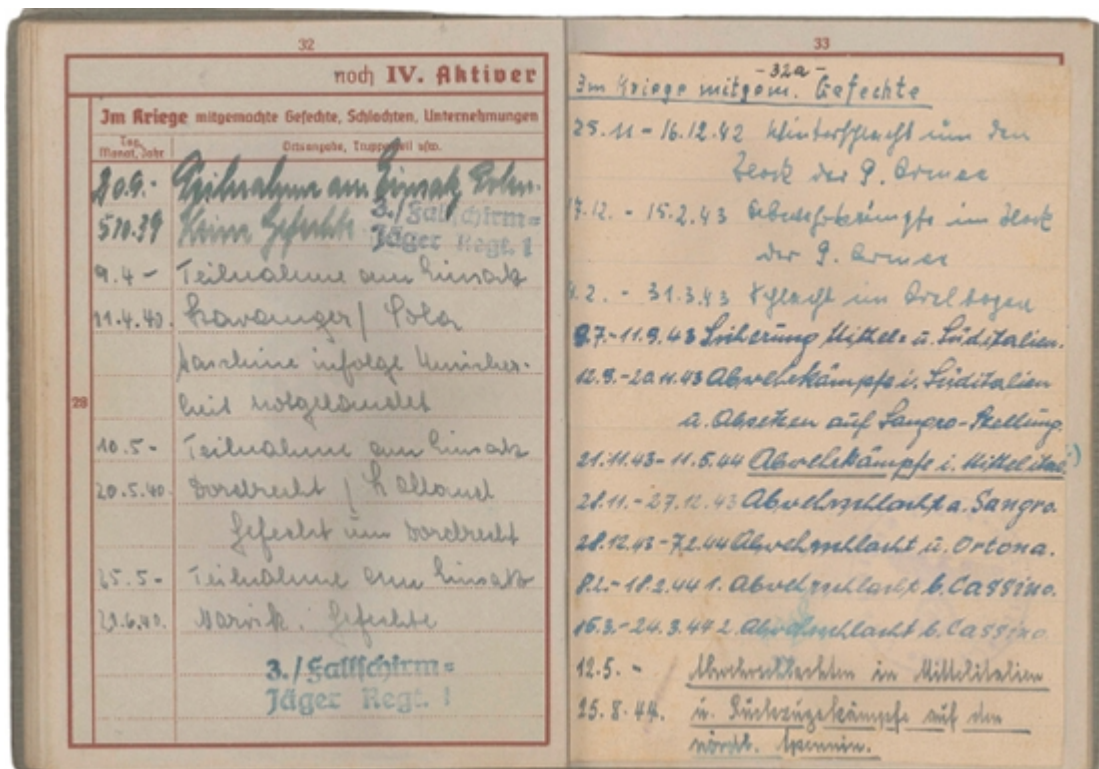 32
noch IV. Aktiver
Im Kriege mitgemachte Gefechte, Schlachten, Unternehmungen
Tag, Monat, Jahr
Ortsangabe, Truppenteil usw.
20.9.- Teilnahme am Einsatz Polen.
5.10.39 Keine Gefechte
3./Fallschirm=
Jäger Regt. 1
9.4 - Teilnahme am Einsatz
11.4.40. Stavanger / Sola
Maschine infolge
notgelandet
10.5 - Teilnahme am Einsatz
20.5.40. Dordrecht / Holland
Gefecht um Dordrecht
25.5 - Teilnahme am Einsatz
Narvik. Gefechte
3./Fallschirm=
Jäger Regt. 1
28
33
- 32a -
Im Kriege mitgem. Gefechte
25.11 - 16.12.42 Winterschlacht um den
Block der 9. Armee
17.12. - 15.2.43 Abwehrkämpfe im Block
der 9. Armee
.2. - 31.3.43 Schlacht im Orelbogen
9.7.-11.9.43 Sicherung Mittel- u. Süditalien.
12.9.-20.11.43 Abwehrkämpfe i. Süditalien
u. Absetzen auf Sangro-Stellung.
21.11.43-11.5.44 Abwehrkämpfe i. Mittelital.
28.11.-27.12.43 Abwehrschlacht a. Sangro.
28.12.43-7.2.44 Abwehrschlacht ü. Ortona.
8.2.-18.2.44 1. Abwehrschlacht b. Cassino.
15.3.-24.3.44 2. Abwehrschlacht b. Cassino
12.5. - Abwehrschlachten in Mittelitalien
25.8.44. u. Rückzugskämpfe auf den
nördl. Apennin.